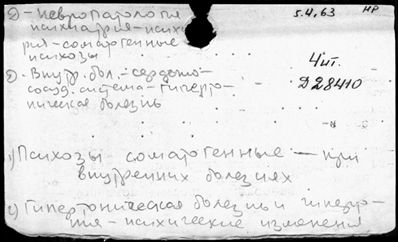 2) - невропатология
психиатрия - психи-
рия - соматогенные
психозы
5.4.63 НР
2). Внутр. бол. - сердечно-
сосуд. система - гиперто-
ническая болезнь
4 шт.
Д 28410
1) Психозы соматогенные - при
внутренних болезнях
2) Гипертоническая болезнь и гиперто-
ния - психические изменения